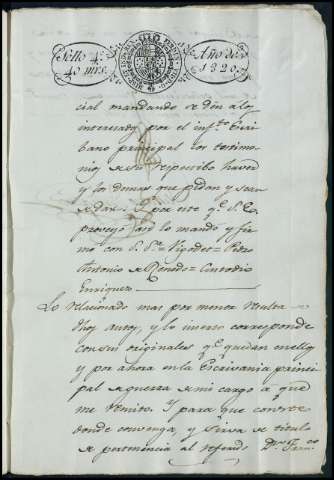 Sello 4.º
40 mrs.
Año de
1820.
cial mandando se dén a los
interesados por el inf.to Escri
bano principal los testimo
nios de su respectibo haver
y los demas que pidan y sean
de dar: Y por este q.e S.E.
proveyó asi lo mandó y fir
mo con S. S.ª = Vigodet = Pedro
Antonio de = Custodio
Enriquez
Lo relacionado mas por menor resulta
dhos autos, y lo inserto corresponde
con sus originales q.e quedan en ellos
y por ahora en la Escrivania princi
pal de guerra de mi cargo a que
me remito. Y para que conste
donde convenga y sirva de titulo
de pertenencia al referido D.n Fran.co